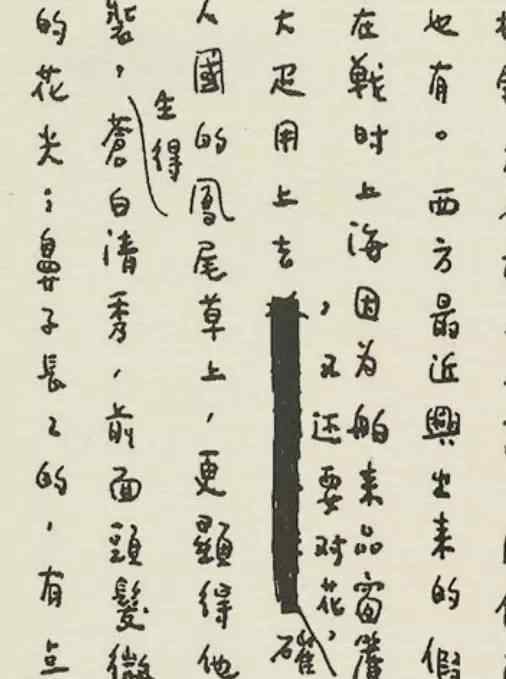 也有。西方最近興出来的假
在戰时上海因为舶来品窗簾
，又还要对花，
大疋用上去
人國的鳳尾草上，更顯得他
生得
裝，蒼白清秀，前面頭髮微
的花尖；鼻子長〻的，有点